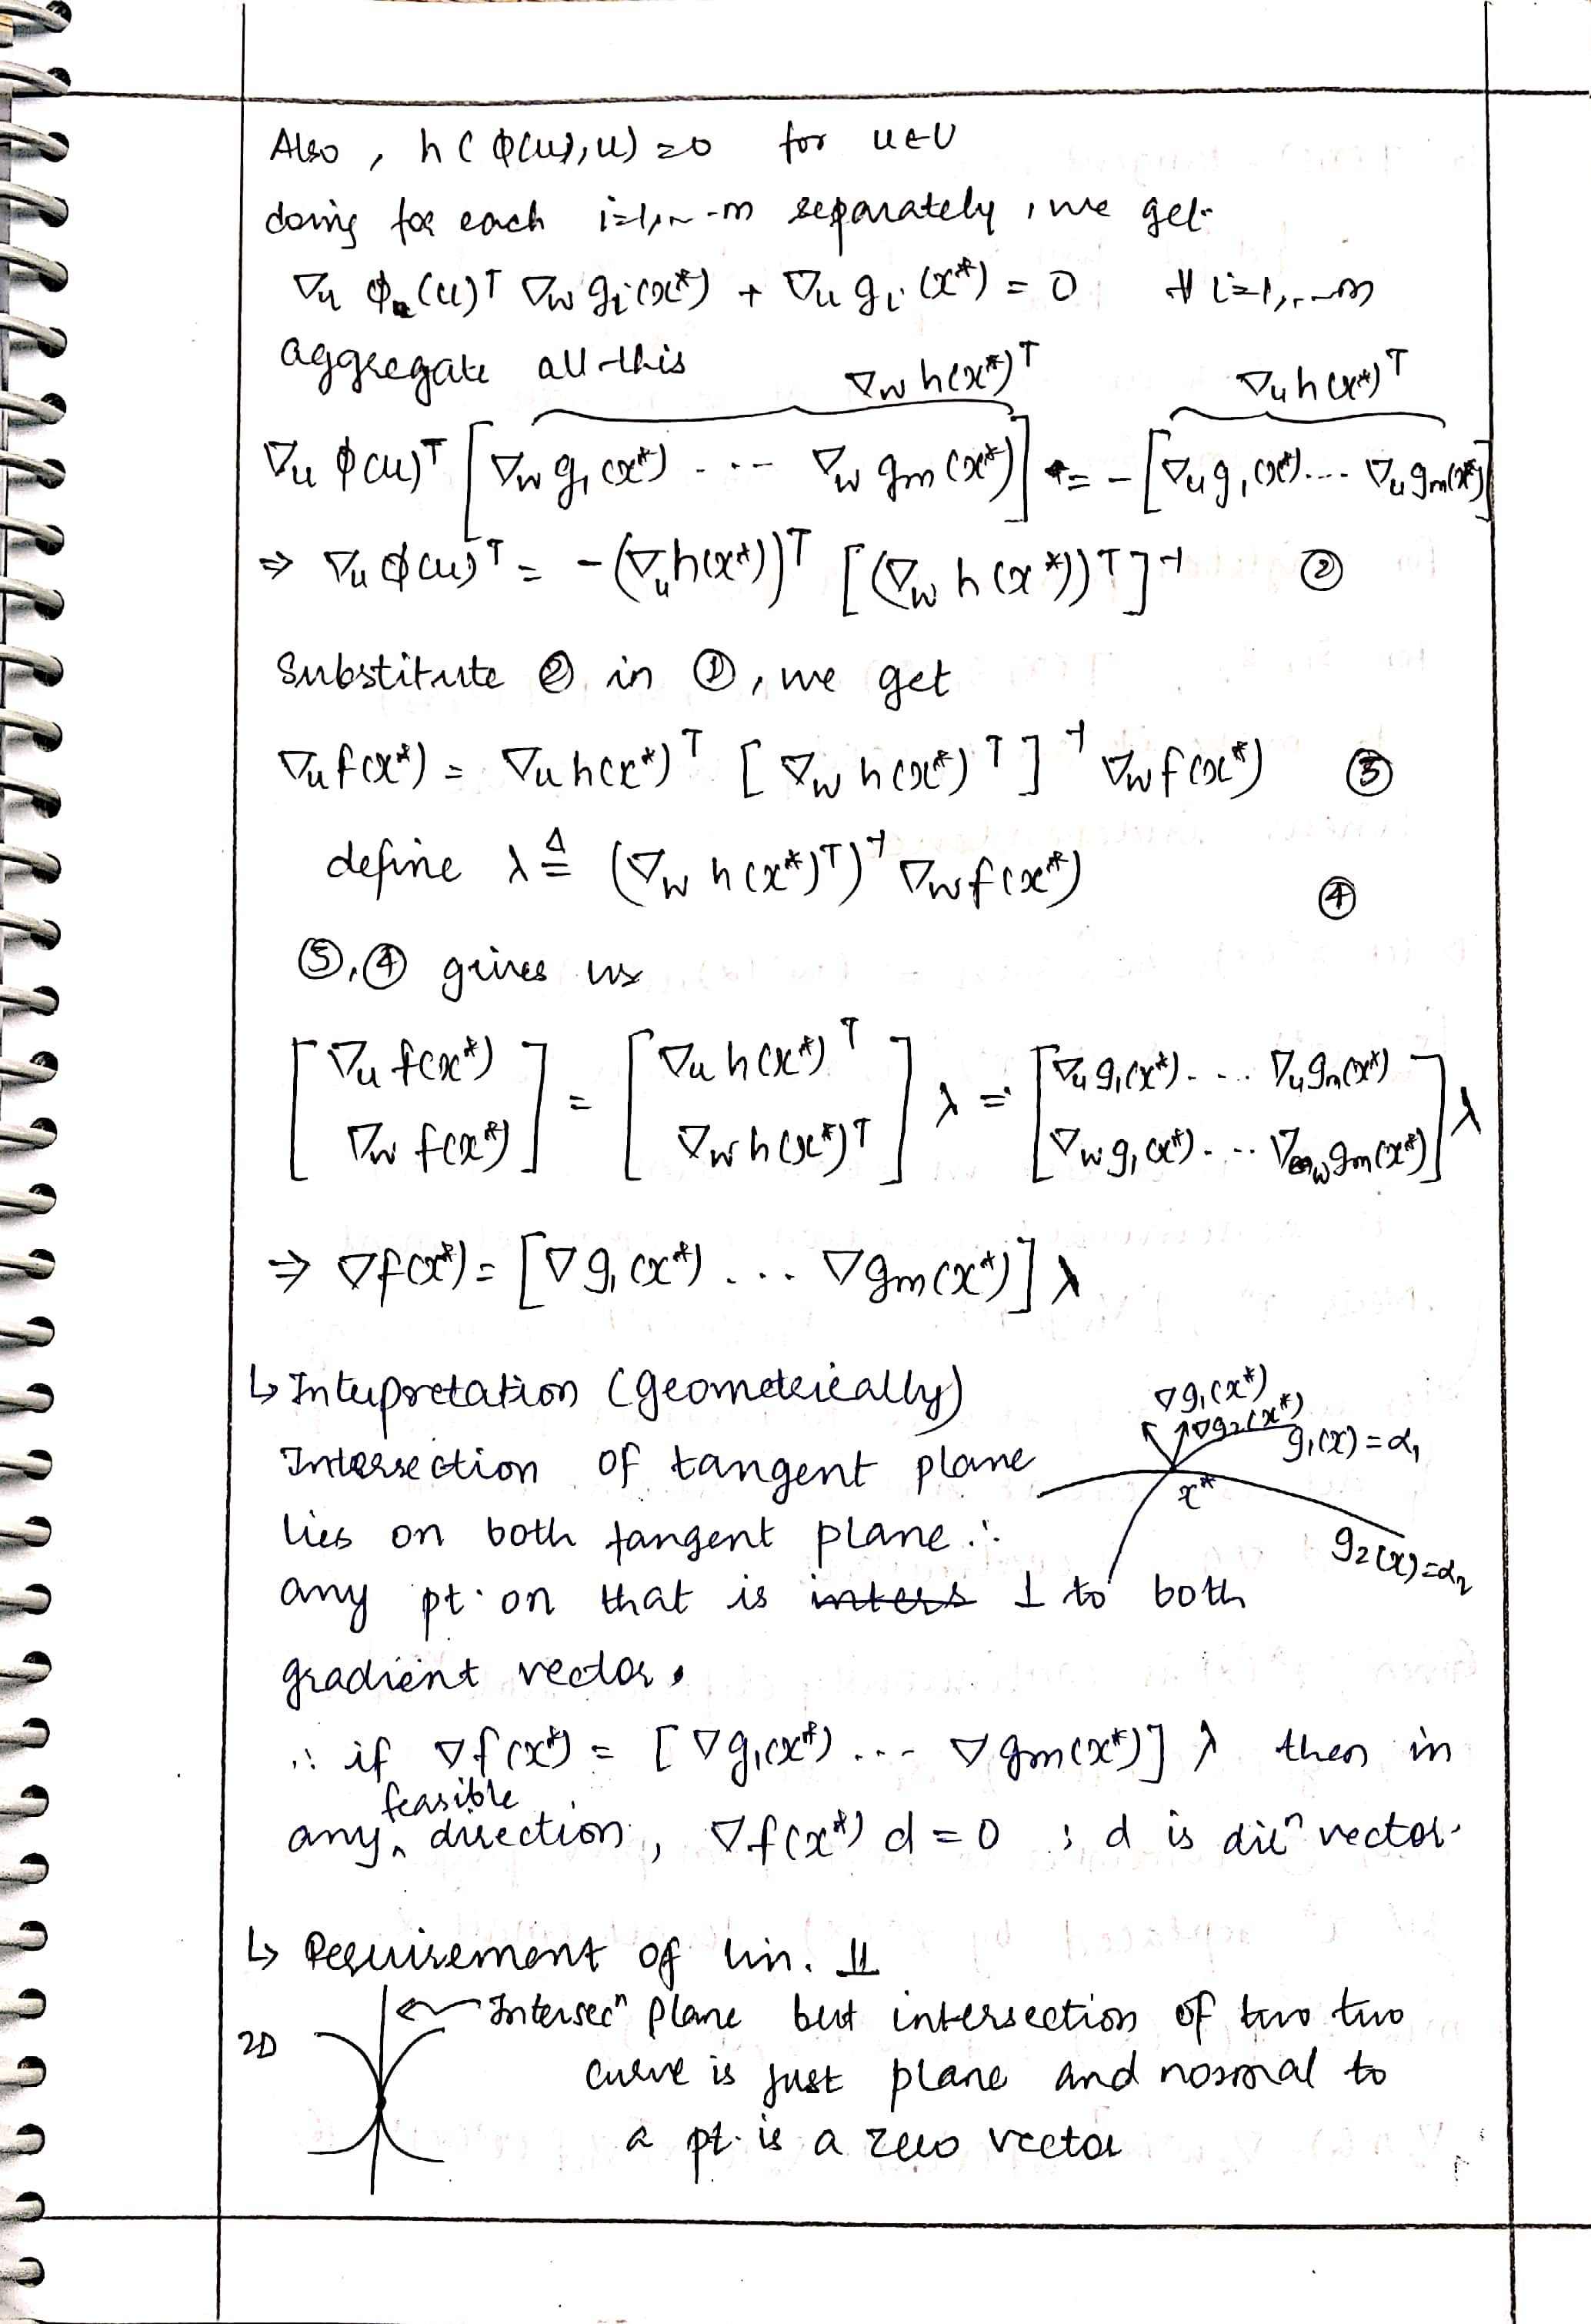 Also, h(φ(u),u)=0 for u∈U
doing for each i=1,~-m separately, we get
∇u φ(u)ᵀ ∇w gi(x*) + ∇u gi(x*) = 0 ∀ i=1,--m
aggregate all this
∇w h(x*)ᵀ ∇u h(x*)ᵀ
∇u φ(u)ᵀ [∇w g₁(x*) ... ∇w gm(x*)] = -[∇u g₁(x*) ... ∇u gm(x*)]
⇒ ∇u φ(u)ᵀ = -(∇u h(x*))ᵀ [(∇w h(x*))ᵀ]⁻¹ ②
Substitute ② in ①, we get
∇u f(x*) = ∇u h(x*)ᵀ [∇w h(x*)ᵀ]⁻¹ ∇w f(x*) ③
define λ ≜ (∇w h(x*)ᵀ)⁻¹ ∇w f(x*) ④
③,④ gives us
[∇u f(x*) ∇w f(x*)] = [∇u h(x*)ᵀ ∇w h(x*)ᵀ] λ = [∇u g₁(x*) ... ∇u gm(x*) ∇w g₁(x*) ... ∇w gm(x*)] λ
⇒ ∇f(x*) = [∇g₁(x*) ... ∇gm(x*)] λ
↳ Intupretation (geometerically)
∇g₁(x*)
∇g₂(x*)
g₁(x)=α₁
x*
g₂(x)=α₂
Interse ction of tangent plane
lies on both tangent plane ∴
any pt. on that is inters ⊥ to both
gradient vector.
∴ if ∇f(x*) = [∇g₁(x*) ... ∇gm(x*)] λ then in
any feasible direction, ∇f(x*) d = 0 ; d is dirⁿ vector.
↳ Requirement of lin. ⫫
2D
← Intersecⁿ plane but intersection of two two
curve is just plane and normal to
a pt. is a zero vector